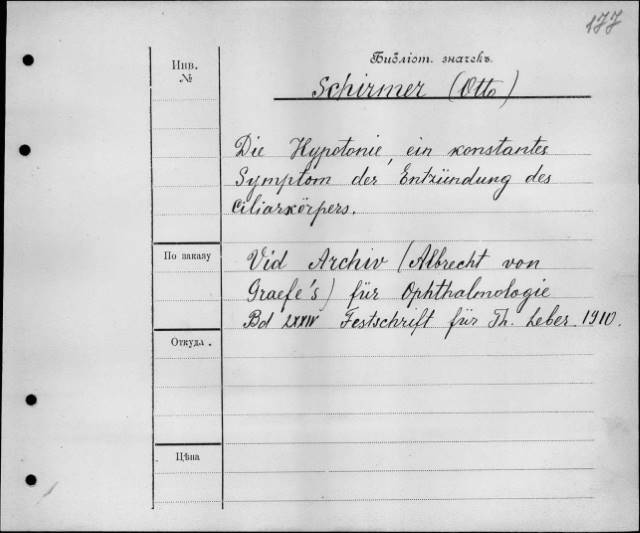 177
Инв.
№
Библіот. значекъ.
Schirmer (Otto)
Die Hypotonie, ein konstantes
Symptom der Entzündung des
Ciliarkörpers.
По заказу
Vid Archiv (Albrecht von
Graefe's) für Ophthalmologie
Bd LXXIV Festschrift für Th. Leber 1910.
Откуда.
Цѣна